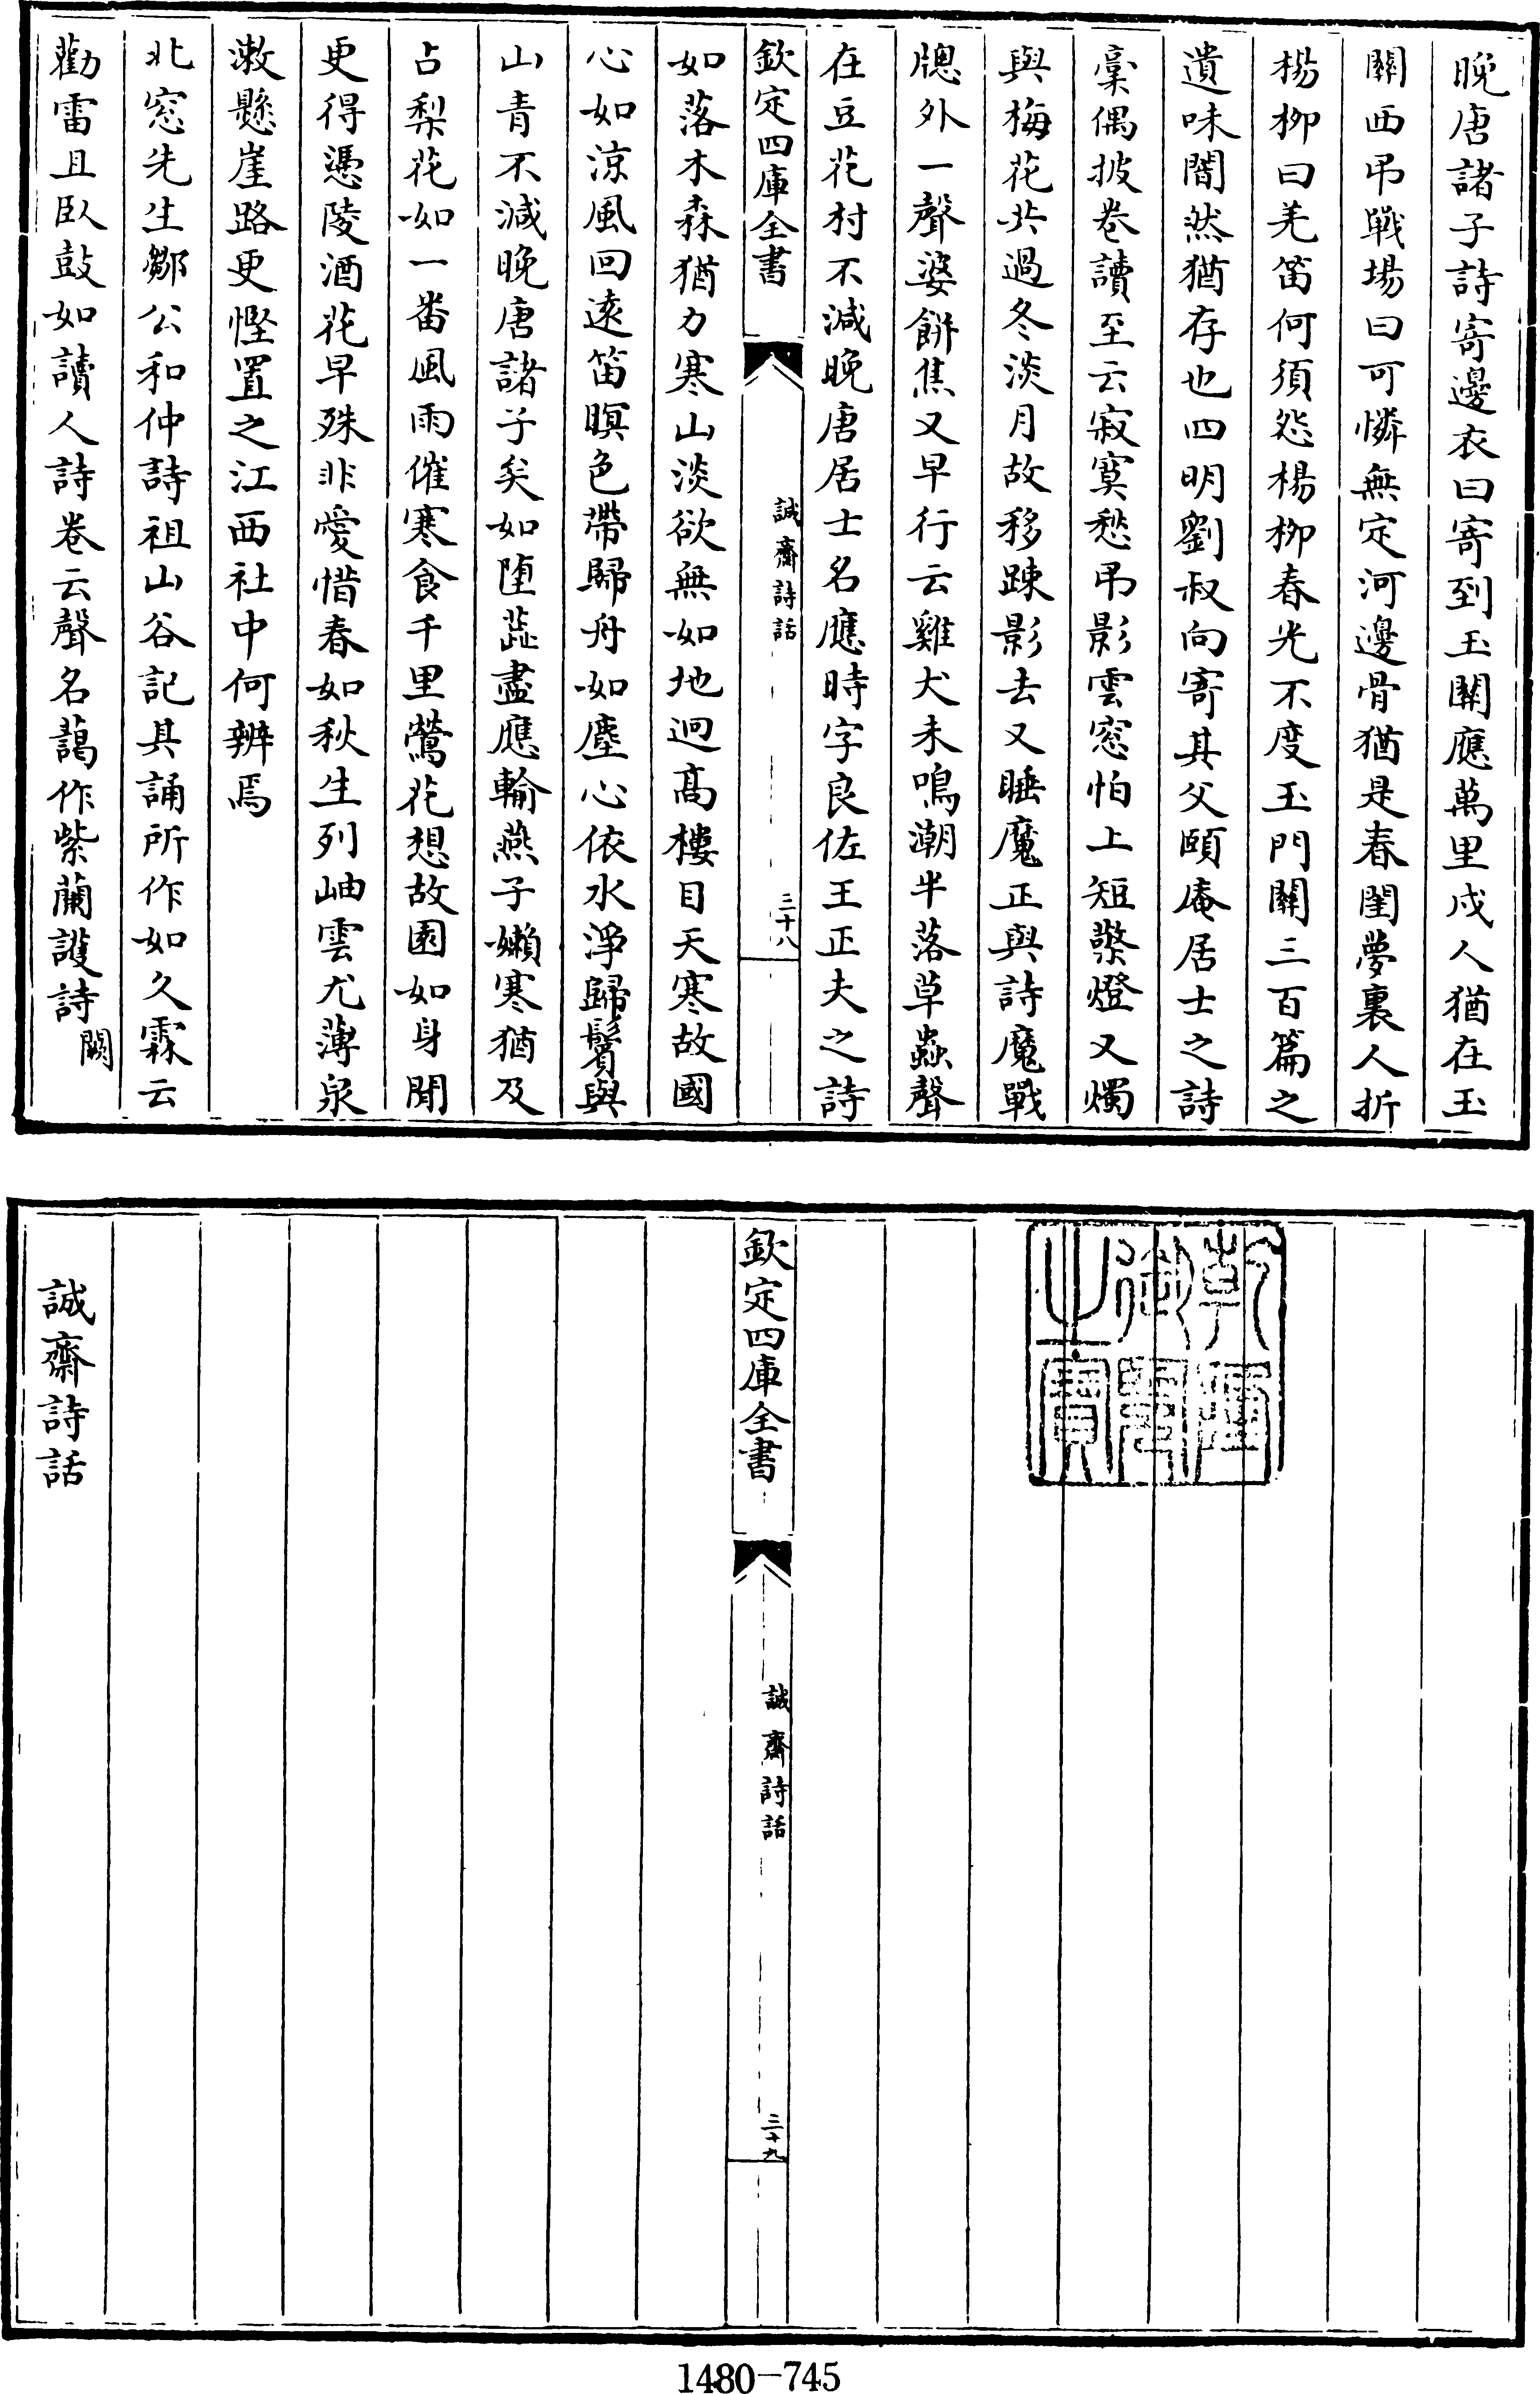 晚唐諸子詩寄邊衣曰寄到玉關應萬里戍人猶在玉
關西弔戰場曰可憐無定河邊骨猶是春閨夢裏人折
楊柳曰羌笛何須怨楊柳春光不度玉門關三百篇之
遺味闇然猶存也四明劉叔向寄其父頤庵居士之詩
藁偶披卷讀至云寂寞愁弔影雲窓怕上短檠燈又燭
與梅花共過冬淡月故移踈影去又睡魔正與詩魔戰
牕外一聲婆餅焦又早行云雞犬未鳴潮半落草蟲聲
在豆花村不減晚唐居士名應時字良佐王正夫之詩
欽定四庫全書
誠齋詩話
三十八
如落木森猶力寒山淡欲無如地迥髙樓目天寒故國
心如涼風回遠笛暝色帶歸舟如塵心依水淨歸鬢與
山青不減晚唐諸子矣如墮蘂盡應輪燕子嬾寒猶及
占梨花如一番風雨催寒食千里鶯花想故園如身閒
更得憑陵酒花早殊非愛惜春如秋生列岫雲尤薄泉
漱懸崖路更慳置之江西社中何辨焉
北窓先生鄒公和仲詩祖山谷記其誦所作如久霖云
勸雷且臥鼓如讀人詩卷云聲名藹作紫蘭謢詩闕
乾隆御覽之寶
欽定四庫全書
誠齋詩話
三十九
誠齋詩話
1480-745